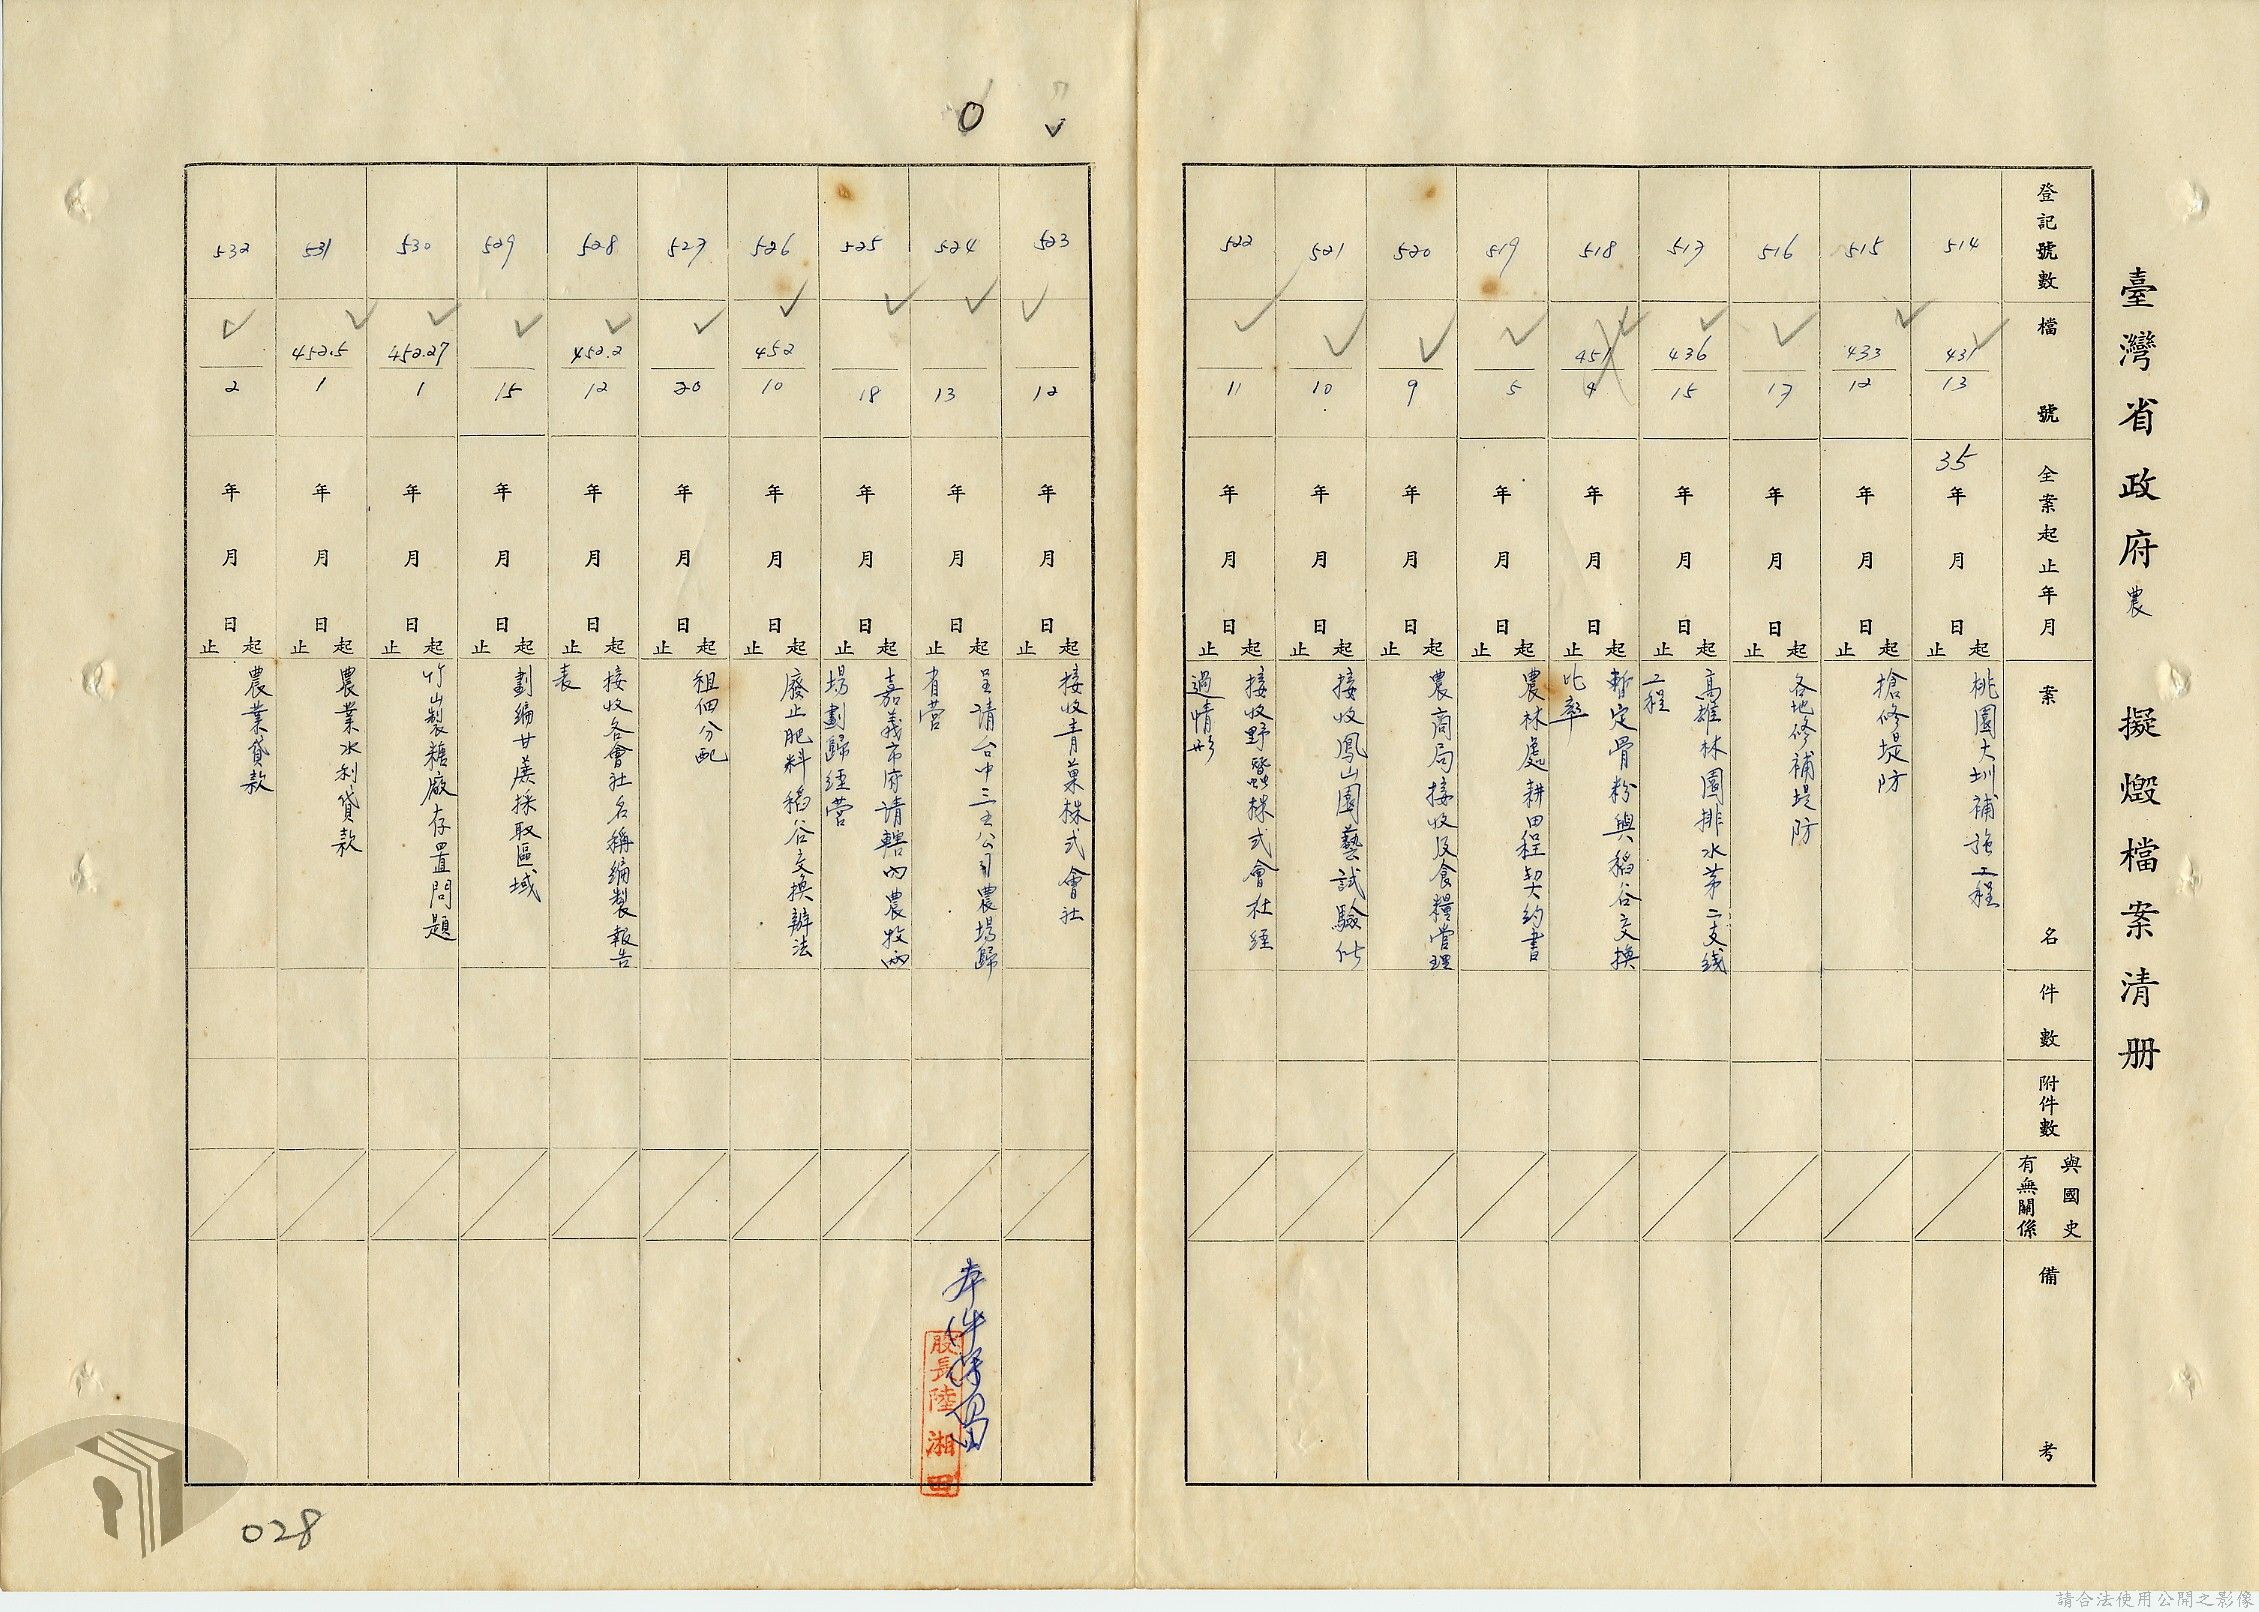 臺灣省政府農 擬燬檔案清册
登記號數
檔號
全案起止年月
案名
件數
附件數
與國史有無關係
備考
514
431/13
35年月日起止
桃園大圳補強工程
515
433/12
年月日起止
搶修堤防
516
17
年月日起止
各地修補堤防
517
436/15
年月日起止
高雄林園排水苐二支线
工程
518
451/4
年月日起止
暫定骨粉與稻谷交換
比率
519
5
年月日起止
農林處耕田程契約書
520
9
年月日起止
農商局接收及食糧管理
521
10
年月日起止
接收鳳山園藝試驗所
522
11
年月日起止
接收野蚕株式會社經
過情形
523
12
年月日起止
接收青菓株式會社
524
13
年月日起止
呈請台中三五公司農場歸
省营
525
18
年月日起止
嘉義市府請轄內農牧兩
場劃歸經营
526
452/10
年月日起止
廢止肥料稻谷交換辦法
527
20
年月日起止
租佃分配
528
452.2/12
年月日起止
接收各會社名稱編製報告
表
529
15
年月日起止
劃編甘蔗採取區域
530
452.27/1
年月日起止
竹山製糖廠存置問題
531
452.5/1
年月日起止
農業水利貸款
532
2
年月日起止
農業貸款
股長陸湘田
028
請合法使用公開之影像